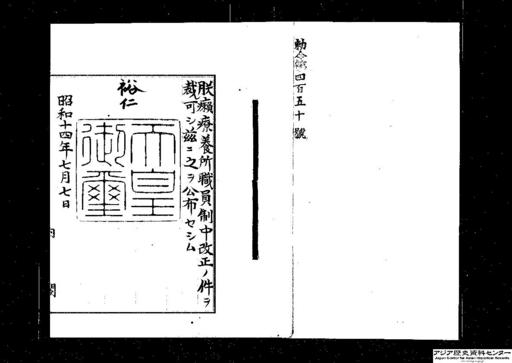 勅令第四百五十號
朕癩療養所職員制中改正ノ件ヲ
裁可シ茲ニ之ヲ公布セシム
裕仁
天皇
御璽
昭和十四年七月七日
内閣
アジア歴史資料センター
Japan Center for Asian Historical Records